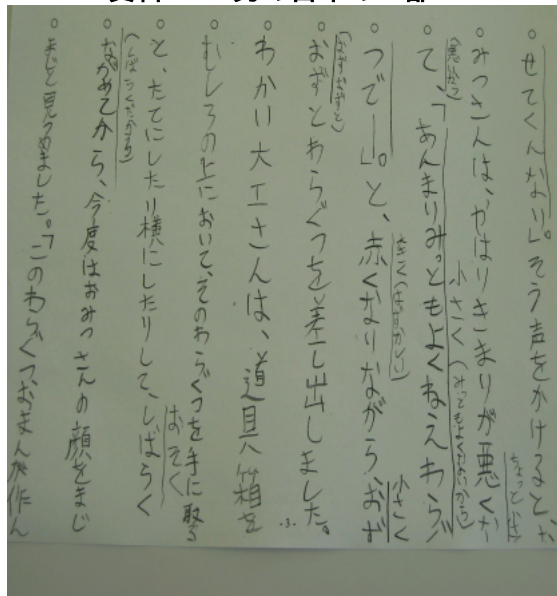 せてくんなり」。そう声をかけると、お
ちょっと小さく
みつさんは、やはりきまりが悪くな
(悪いなあ)
小さく(みっともよくないから)
て、「あんまりみっともよくねえわらぐ
つでー」。と、赤くなりながら、おず
小さく
(おずおずと)
おずとわらぐつを差し出しました。
わかい大工さんは、道具箱を
むしろの上において、そのわらぐつを手に取る
と、たてにしたり横にしたりして、しばらく
おそく
ながめてから、今度はおみつさんの顔をまじ
まじと見つめました。「このわらぐつ、おまんが作ん
.3.